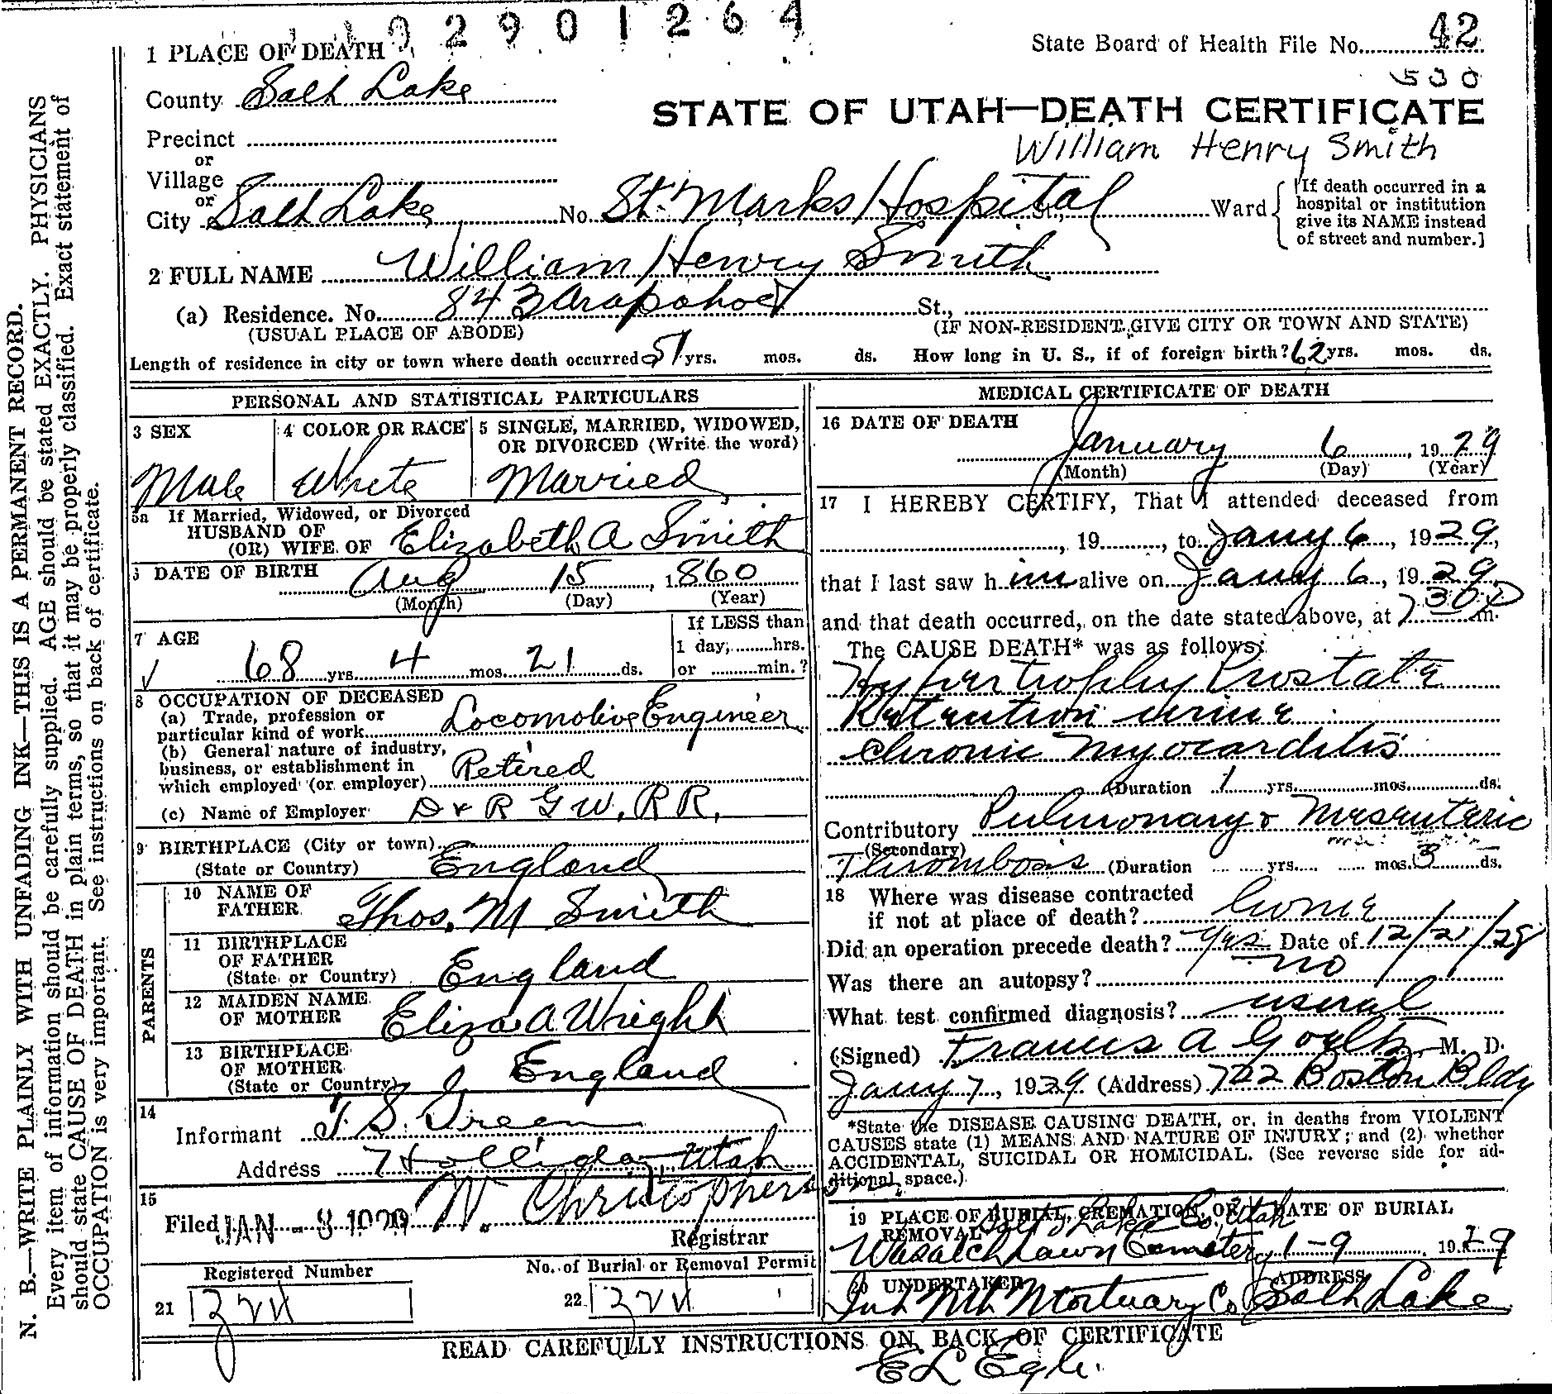 2901264
State Board of Health File No. 42
530
1 PLACE OF DEATH
County Salt Lake
STATE OF UTAH—DEATH CERTIFICATE
Precinct
William Henry Smith
or
Village
or
City Salt Lake No. St. Marks Hospital St., Ward
[If death occurred in a
hospital or institution
give its NAME instead
of street and number.]
2 FULL NAME William Henry Smith
(a) Residence. No. 843 Arapahoe St.,
(USUAL PLACE OF ABODE) (IF NON-RESIDENT GIVE CITY OR TOWN AND STATE)
Length of residence in city or town where death occurred 51 yrs. mos. ds. How long in U. S., if of foreign birth? 62 yrs. mos. ds.
PERSONAL AND STATISTICAL PARTICULARS
3 SEX
Male
4 COLOR OR RACE
White
5 SINGLE, MARRIED, WIDOWED,
OR DIVORCED (Write the word)
Married
5a If Married, Widowed, or Divorced
HUSBAND OF
(OR) WIFE OF Elizabeth A Smith
6 DATE OF BIRTH Aug 15, 1860
(Month) (Day) (Year)
7 AGE
68 yrs. 4 mos. 21 ds.
If LESS than
1 day, hrs.
or min.?
8 OCCUPATION OF DECEASED
(a) Trade, profession or
particular kind of work Locomotive Engineer
(b) General nature of industry,
business, or establishment in
which employed (or employer) Retired
(c) Name of Employer D & R G W. R R.
9 BIRTHPLACE (City or town)
(State or Country) England
PARENTS
10 NAME OF
FATHER Thos. M Smith
11 BIRTHPLACE
OF FATHER
(State or Country) England
12 MAIDEN NAME
OF MOTHER Eliza A Wright
13 BIRTHPLACE
OF MOTHER
(State or Country) England
14
Informant T. S. Green
Address Holliday, Utah
15
Filed JAN - 8 1929 W. Christophers
Registrar
Registered Number
21
No. of Burial or Removal Permit
22
MEDICAL CERTIFICATE OF DEATH
16 DATE OF DEATH
January 6, 1929
(Month) (Day) (Year)
17 I HEREBY CERTIFY, That I attended deceased from
, 19 , to Jany 6, 1929,
that I last saw him alive on Jany 6, 1929,
and that death occurred, on the date stated above, at 7 30 P m.
The CAUSE DEATH* was as follows:
Hypertrophy Prostate
Retention urine
Chronic Myocarditis
(Duration 1 yrs. mos. ds.
Contributory Pulmonary & Mesenteric
(Secondary)
Thrombosis (Duration yrs. mos. 3 ds.
18 Where was disease contracted
if not at place of death? Home
Did an operation precede death? Yes Date of 12/21/28
Was there an autopsy? no
What test confirmed diagnosis? usual
(Signed) Francis A M. D.
Jany 7, 1929 (Address) 722 Boston Bldg
*State the DISEASE CAUSING DEATH, or, in deaths from VIOLENT
CAUSES state (1) MEANS AND NATURE OF INJURY; and (2) whether
ACCIDENTAL, SUICIDAL OR HOMICIDAL. (See reverse side for ad-
ditional space.)
19 PLACE OF BURIAL, CREMATION, OR
REMOVAL Salt Lake Co, Utah
Wasatch Lawn Cemetery
DATE OF BURIAL
1-9, 1929
20 UNDERTAKER
Mortuary Co
ADDRESS
Salt Lake
READ CAREFULLY INSTRUCTIONS ON BACK OF CERTIFICATE
N. B.—WRITE PLAINLY WITH UNFADING INK—THIS IS A PERMANENT RECORD.
Every item of information should be carefully supplied. AGE should be stated EXACTLY. PHYSICIANS
should state CAUSE OF DEATH in plain terms, so that it may be properly classified. Exact statement of
OCCUPATION is very important. See instructions on back of certificate.